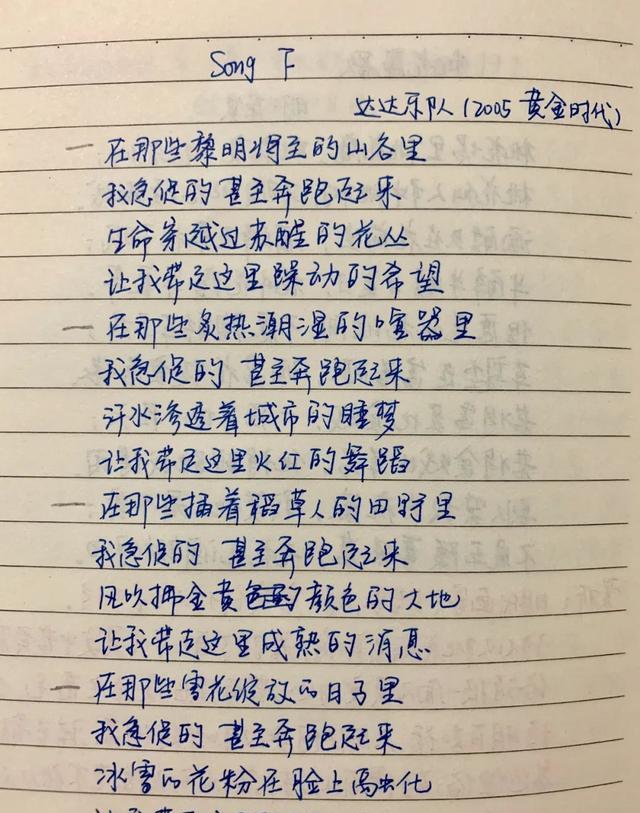 Song F
达达乐队(2005 黄金时代)
一 在那些黎明将至的山谷里
我急促的 甚至奔跑起来
生命穿越过苏醒的花丛
让我带走这里躁动的希望
一 在那些炙热潮湿的喧嚣里
我急促的 甚至奔跑起来
汗水渗透着城市的睡梦
让我带走这里火红的舞蹈
一 在那些插着稻草人的田野里
我急促的 甚至奔跑起来
风吹拂金黄颜色的大地
让我带走这里成熟的消息
一 在那些雪花绽放的日子里
我急促的 甚至奔跑起来
冰雪的花粉在脸上融化